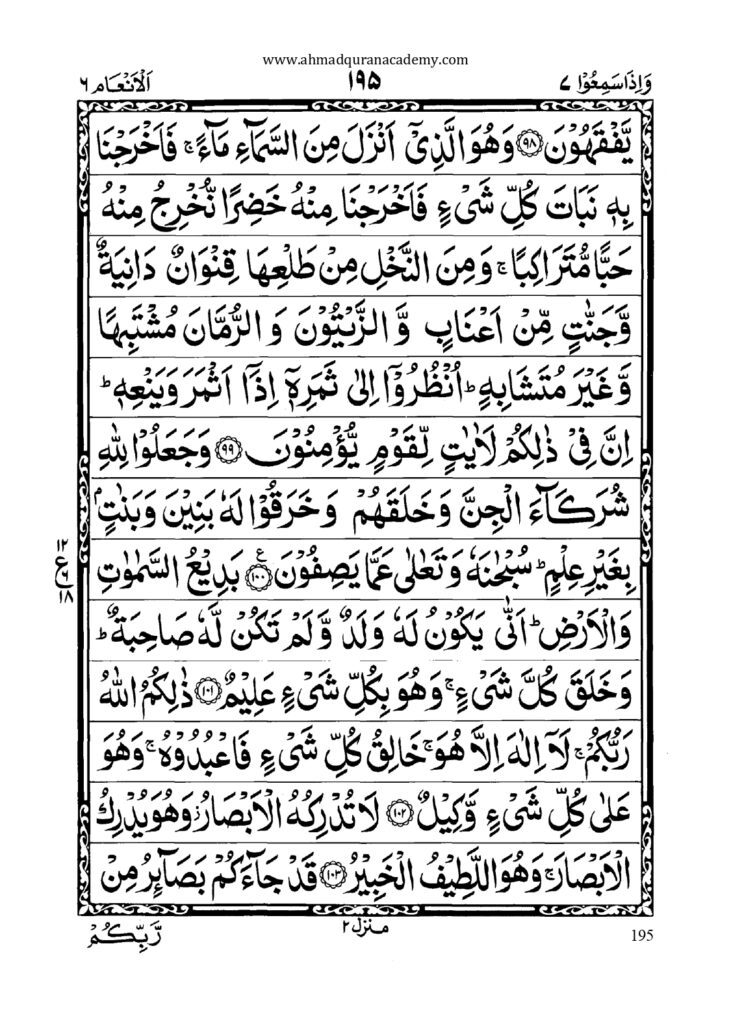 www.ahmadquranacademy.com
وَاِذَاسَمِعُوْا ٧ ١٩٥ اَلْاَنْعَام ٦
يَّفْقَهُوْنَ ﴿٩٨﴾ وَهُوَ الَّذِىْۤ اَنْزَلَ مِنَ السَّمَآءِ مَآءً ۚ فَاَخْرَجْنَا
بِهٖ نَبَاتَ كُلِّ شَىْءٍ فَاَخْرَجْنَا مِنْهُ خَضِرًا نُّخْرِجُ مِنْهُ
حَبًّا مُّتَرَاكِبًا ۚ وَمِنَ النَّخْلِ مِنْ طَلْعِهَا قِنْوَانٌ دَانِيَةٌ
وَّجَنّٰتٍ مِّنْ اَعْنَابٍ وَّالزَّيْتُوْنَ وَالرُّمَّانَ مُشْتَبِهًا
وَّغَيْرَ مُتَشَابِهٍ ؕ اُنْظُرُوْۤا اِلٰى ثَمَرِهٖۤ اِذَاۤ اَثْمَرَ وَيَنْعِهٖ ؕ
اِنَّ فِىْ ذٰلِكُمْ لَاٰيٰتٍ لِّقَوْمٍ يُّؤْمِنُوْنَ ﴿٩٩﴾ وَجَعَلُوْا لِلّٰهِ
شُرَكَآءَ الْجِنَّ وَخَلَقَهُمْ وَخَرَقُوْا لَهٗ بَنِيْنَ وَبَنٰتٍۭ
بِغَيْرِ عِلْمٍ ؕ سُبْحٰنَهٗ وَتَعٰلٰى عَمَّا يَصِفُوْنَ ﴿١٠٠﴾ ع بَدِيْعُ السَّمٰوٰتِ
١٢
ع
٦
١٨
وَالْاَرْضِ ؕ اَنّٰى يَكُوْنُ لَهٗ وَلَدٌ وَّلَمْ تَكُنْ لَّهٗ صَاحِبَةٌ ؕ
وَخَلَقَ كُلَّ شَىْءٍ ۚ وَهُوَ بِكُلِّ شَىْءٍ عَلِيْمٌ ﴿١٠١﴾ ذٰلِكُمُ اللّٰهُ
رَبُّكُمْ ۚ لَاۤ اِلٰهَ اِلَّا هُوَ ۚ خَالِقُ كُلِّ شَىْءٍ فَاعْبُدُوْهُ ۚ وَهُوَ
عَلٰى كُلِّ شَىْءٍ وَّكِيْلٌ ﴿١٠٢﴾ لَا تُدْرِكُهُ الْاَبْصَارُ ز وَهُوَ يُدْرِكُ
الْاَبْصَارَ ۚ وَهُوَ اللَّطِيْفُ الْخَبِيْرُ ﴿١٠٣﴾ قَدْ جَآءَكُمْ بَصَآئِرُ مِنْ
195 منزل ٢ رَّبِّكُمْ